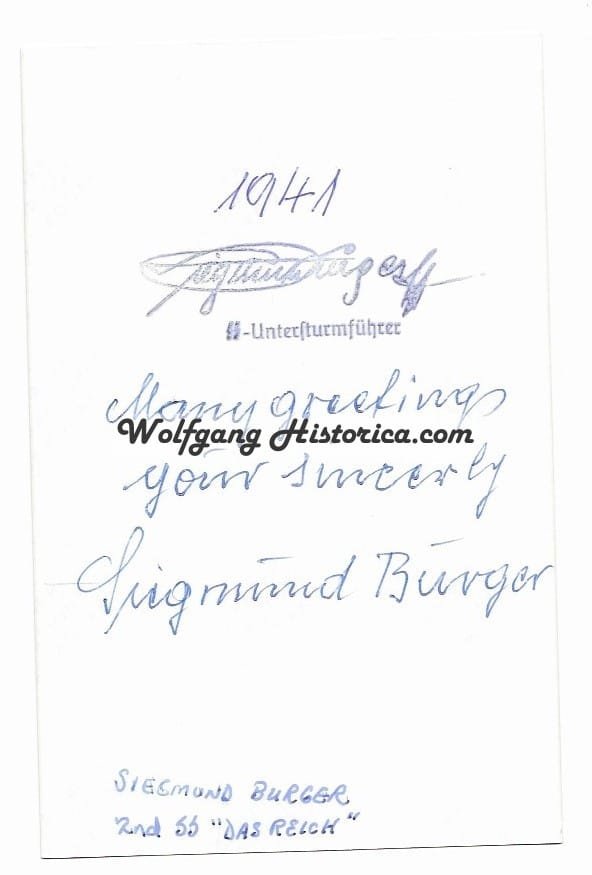 1941
ᛋᛋ-Unterſturmführer
Many greetings
Wolfgang Historica.com
your sincerly
Siegmund Bürger
SIEGMUND BURGER
2nd SS "DAS REICH"